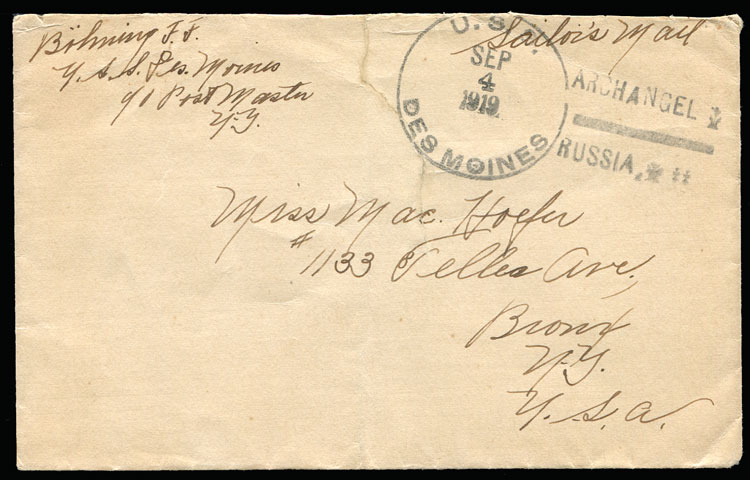 Böhning F. F.
U.S.S. Des Moines
c/o Post Master
N.Y.
Sailor's Mail
U.S.S.
SEP
4
1919
DES MOINES
ARCHANGEL
RUSSIA,
Miss Mae. Hoefer
#1133 Teller Ave.,
Bronx
N.Y.
U.S.A.